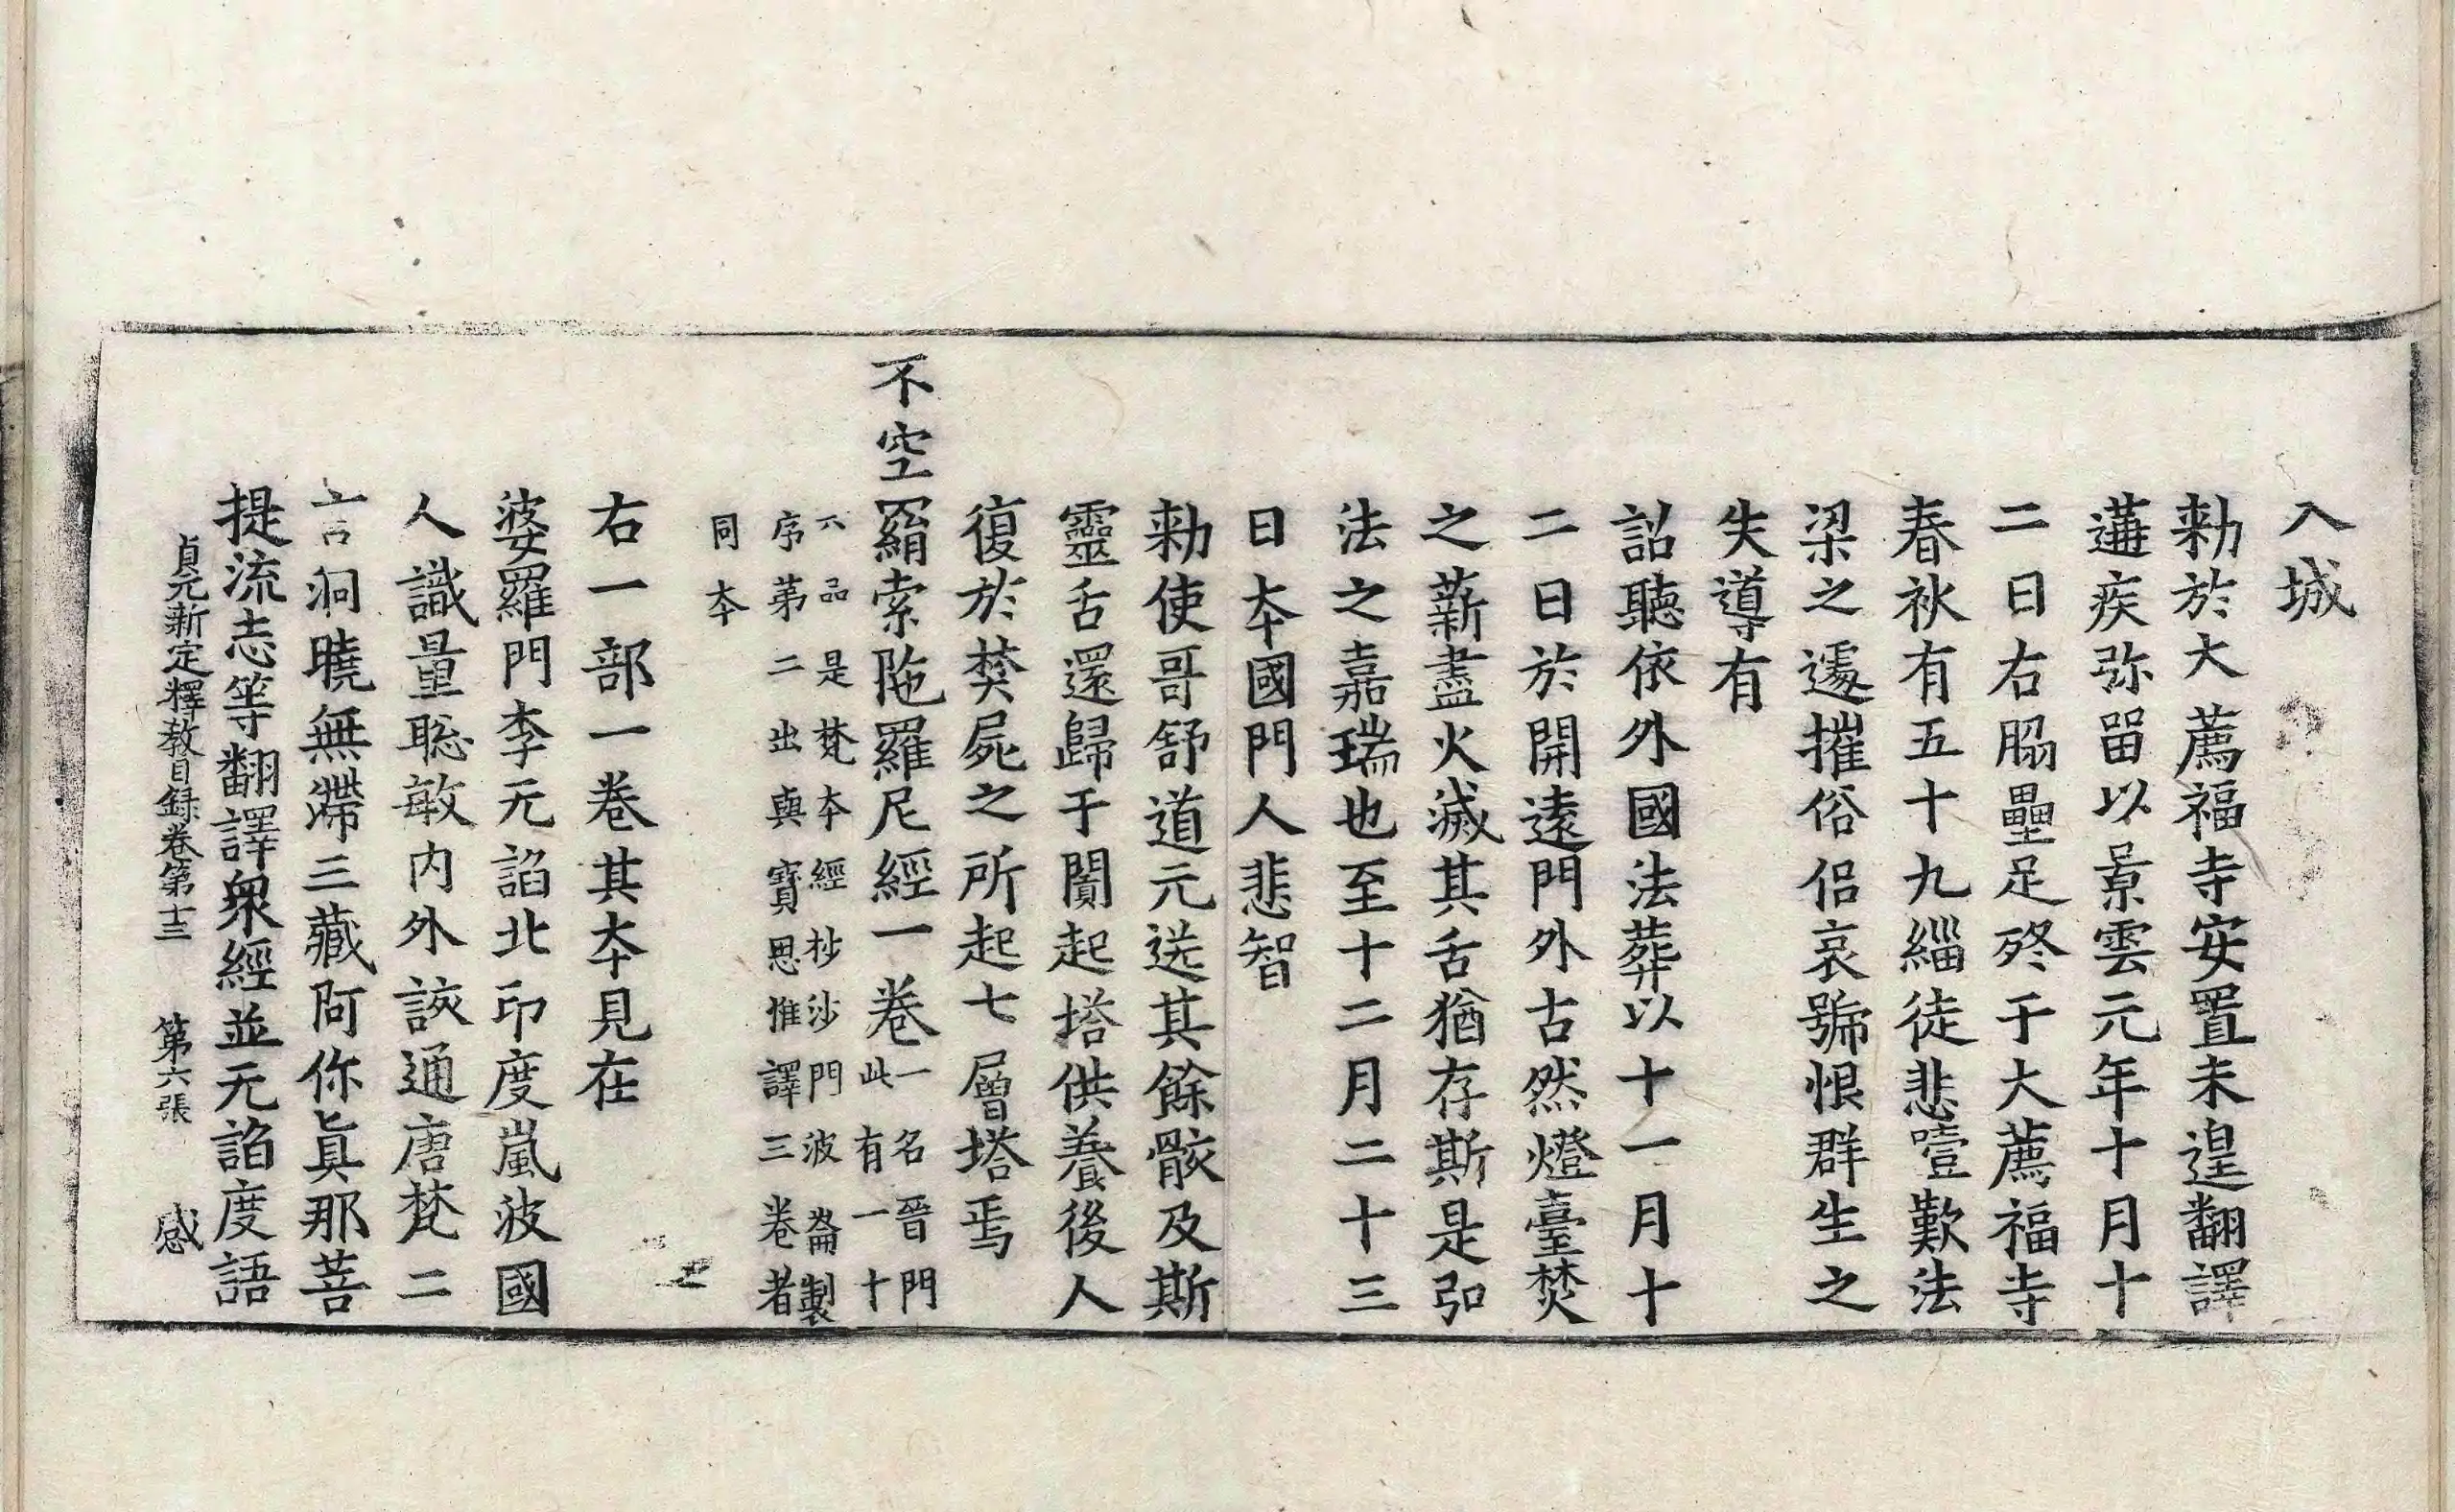 入城
勑於大薦福寺安置未遑翻譯
遘疾弥留以景雲元年十月十
二日右脇壘足終于大薦福寺
春秋有五十九緇徒悲噎歎法
梁之遽摧俗侶哀號恨群生之
失導有
詔聽依外國法葬以十一月十
二日於開遠門外古然燈臺焚
之薪盡火滅其舌猶存斯是弘
法之嘉瑞也至十二月二十三
日本國門人悲智
勑使哥舒道元送其餘骸及斯
靈舌還歸于闐起塔供養後人
復於焚屍之所起七層塔焉
不空羂索陁羅尼經一卷一名普門
此有一十
六品是梵本經抄沙門波崙製
序第二出與寶思惟譯三卷者
同本
右一部一卷其本見在
婆羅門李无諂北印度嵐波國
人識量聡敏内外該通唐梵二
言洞曉無滯三藏阿你真那菩
提流志等翻譯衆經並无諂度語
貞元新定釋教目録卷第十三 第六張 感